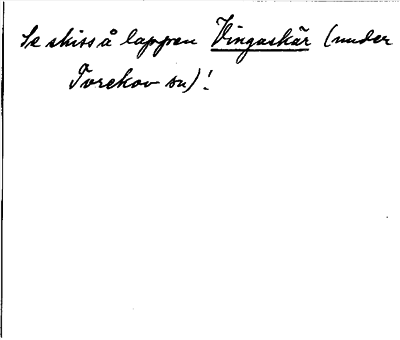 Se skiss å lappen Vingaskär (under
Torekov sn)!